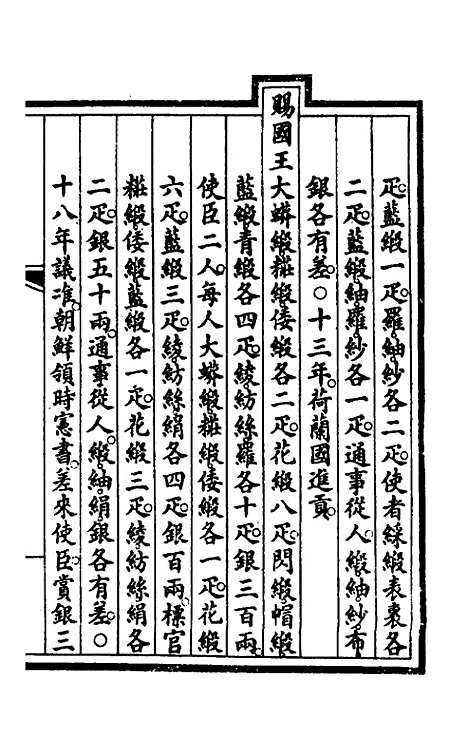 疋。藍緞一疋。羅紬紗各二疋。使者綵緞表裏各
二疋。藍緞紬羅紗各一疋。通事從人。緞紬紗布
銀各有差。○十三年。荷蘭國進貢。
賜國王大蟒緞粧緞倭緞各二疋。花緞八疋。閃緞帽緞
藍緞青緞各四疋。綾紡絲羅各十疋。銀三百兩。
使臣二人。每人大蟒緞粧緞倭緞各一疋。花緞
六疋。藍緞三疋。綾紡絲絹各四疋。銀百兩。標官
粧緞倭緞藍緞各一疋。花緞三疋。綾紡絲絹各
二疋。銀五十兩。通事從人。緞紬絹銀各有差。○
十八年議准。朝鮮領時憲書。差來使臣。賞銀三